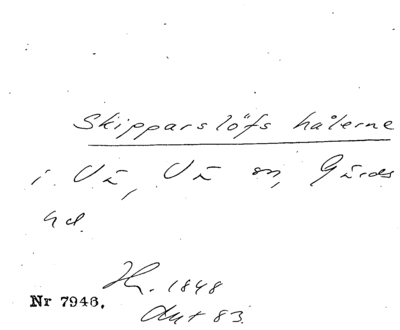 Skipparslöfs hålorne
i Vä, Vä sn, Gärds
hd.
Hr. 1848
Akt 83.
Nr 7946.